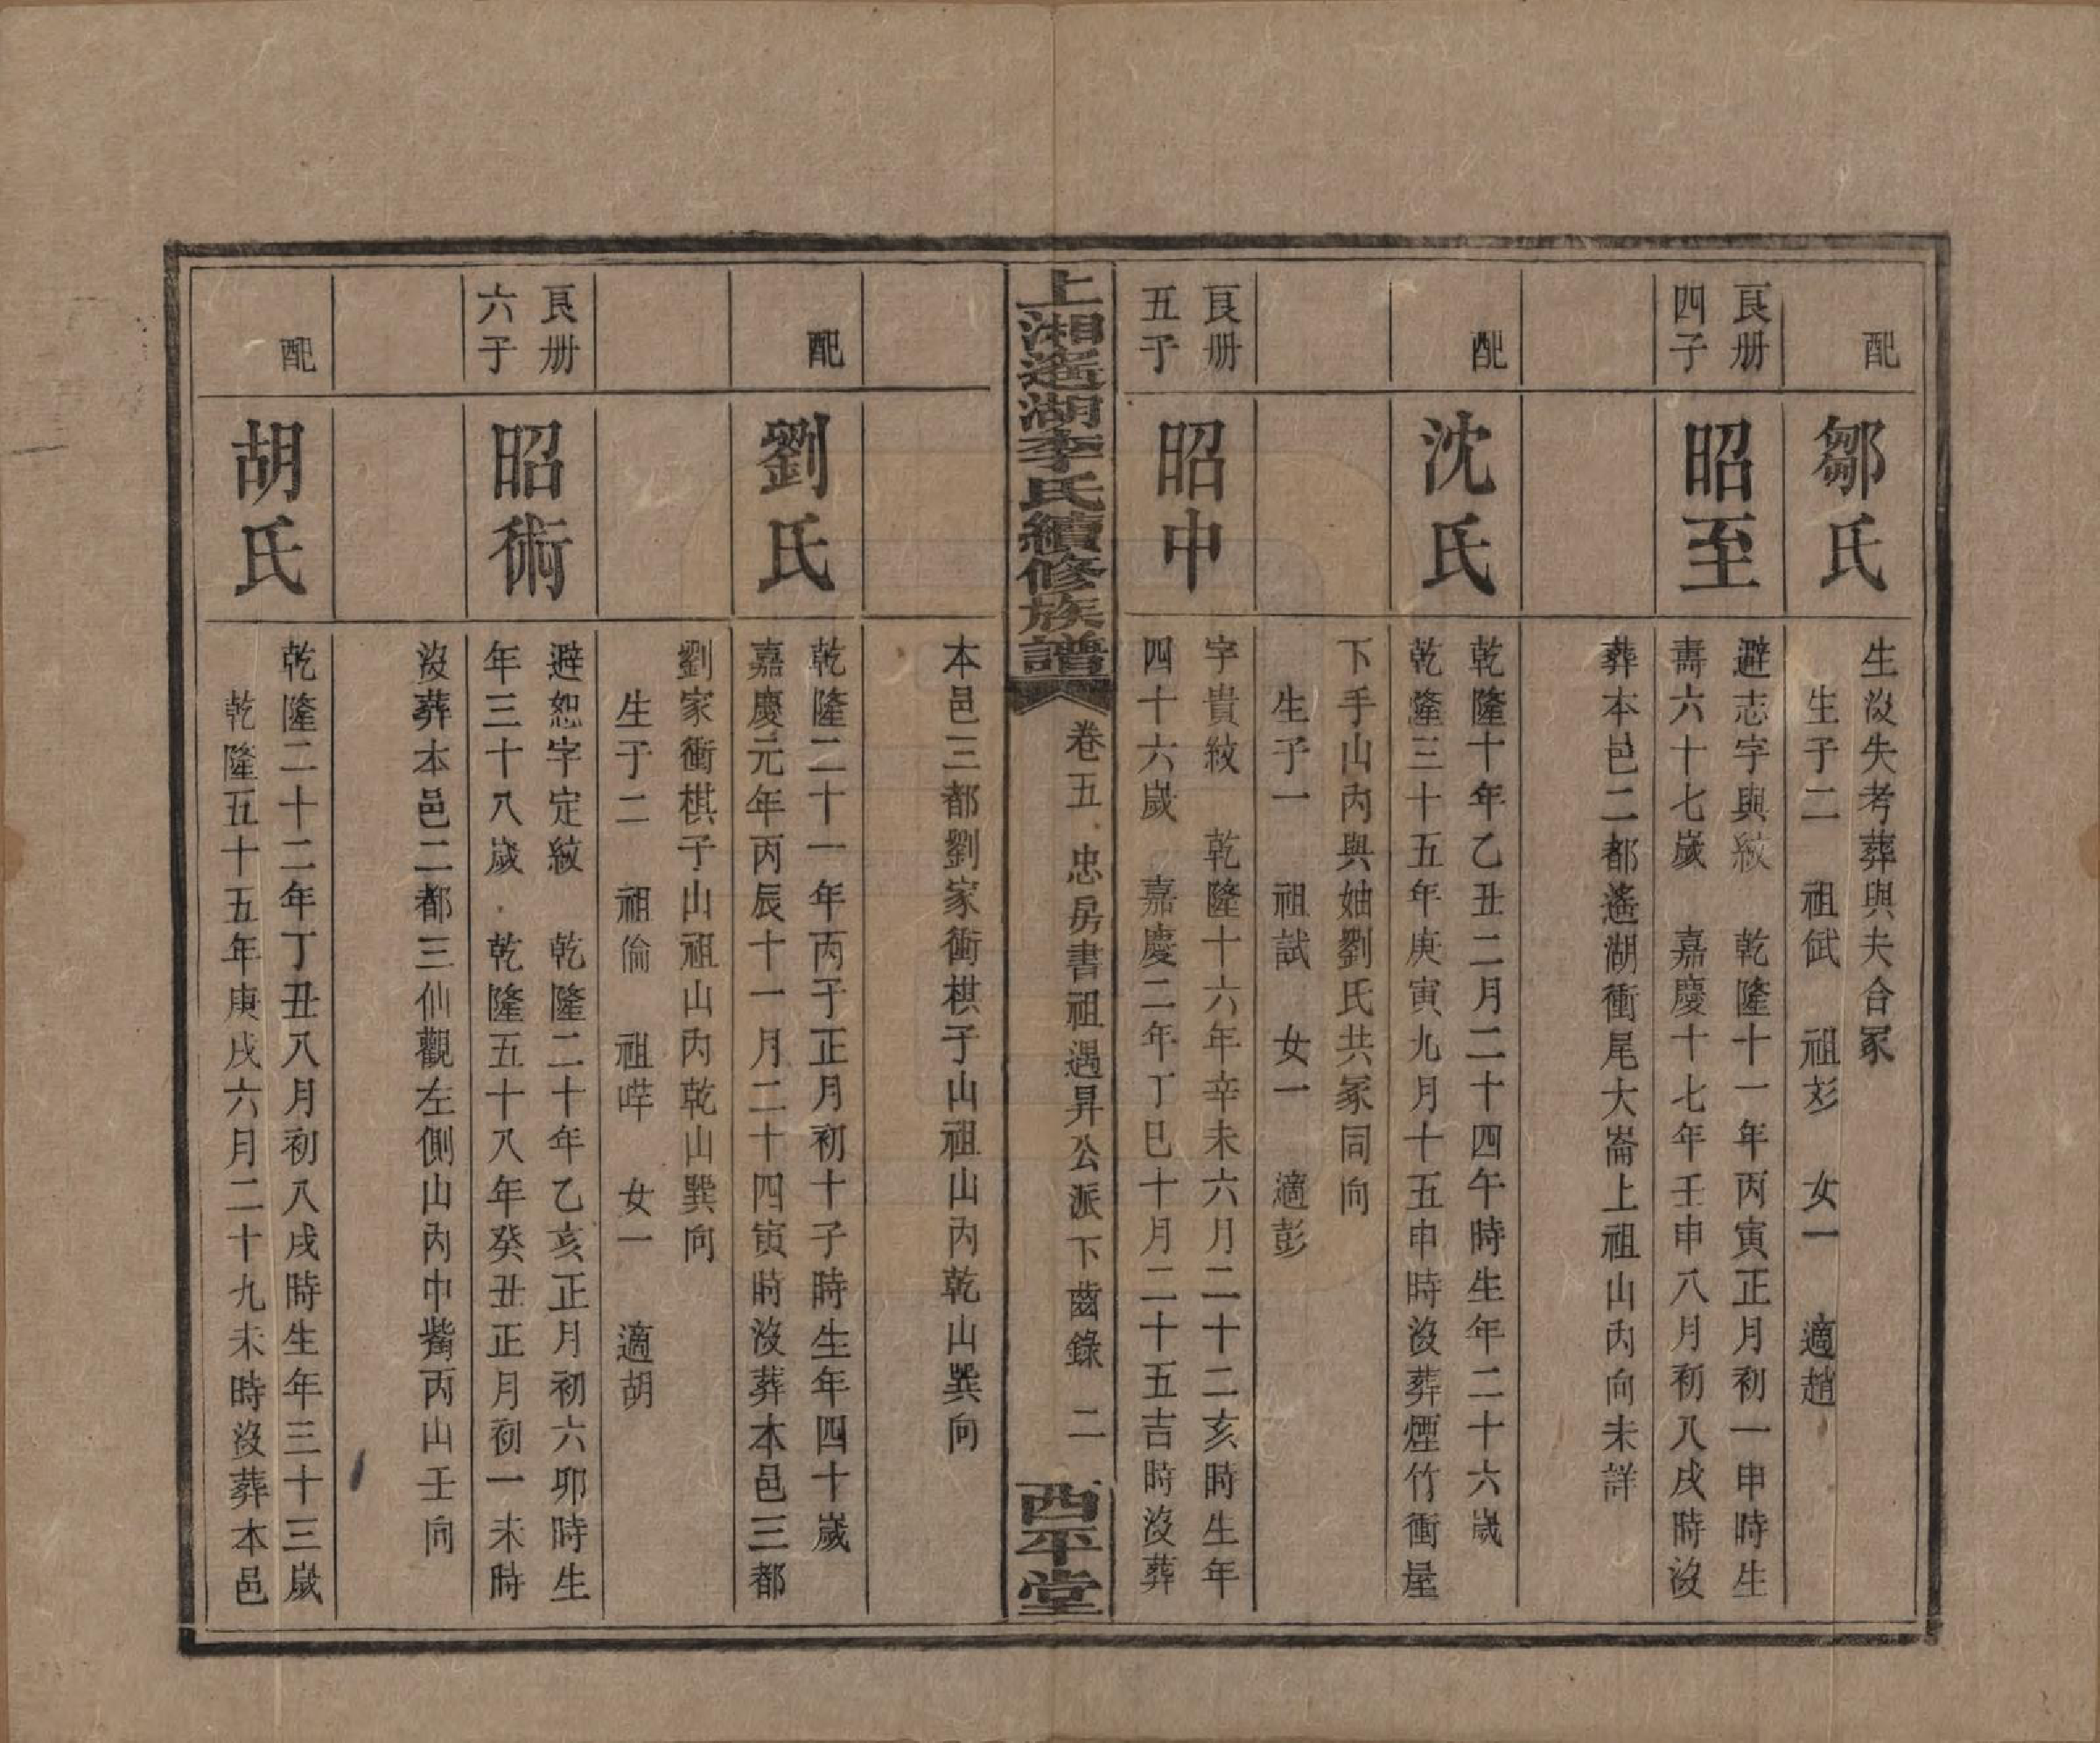 配
鄒氏
生沒失考葬與夫合冢
生子二　祖弑　祖彣　女一　適趙
良册
四子
昭至
避志字與紋　乾隆十一年丙寅正月初一申時生
壽六十七歲　嘉慶十七年壬申八月初八戌時沒
葬本邑二都遙湖衝尾大崙上祖山內向未詳
配
沈氏
乾隆十年乙丑二月二十四午時生年二十六歲
乾隆三十五年庚寅九月十五申時沒葬煙竹衝屋
下手山內與妯劉氏共冢同向
生子一　祖試　女一　適彭
良册
五子
昭中
字貴紋　乾隆十六年辛未六月二十二亥時生年
四十六歲　嘉慶二年丁巳十月二十五吉時沒葬
上湘遙湖李氏續修族譜
卷五　忠房書祖遇昇公派下齒錄　二
西平堂
本邑三都劉家衝棋子山祖山內乾山巽向
配
劉氏
乾隆二十一年丙子正月初十子時生年四十歲
嘉慶元年丙辰十一月二十四寅時沒葬本邑三都
劉家衝棋子山祖山內乾山巽向
生子二　祖倫　祖哶　女一　適胡
良册
六子
昭術
避恕字定紋　乾隆二十年乙亥正月初六卯時生
年三十八歲　乾隆五十八年癸丑正月初一未時
沒葬本邑二都三仙觀左側山內中嘴丙山壬向
配
胡氏
乾隆二十二年丁丑八月初八戌時生年三十三歲
乾隆五十五年庚戌六月二十九未時沒葬本邑